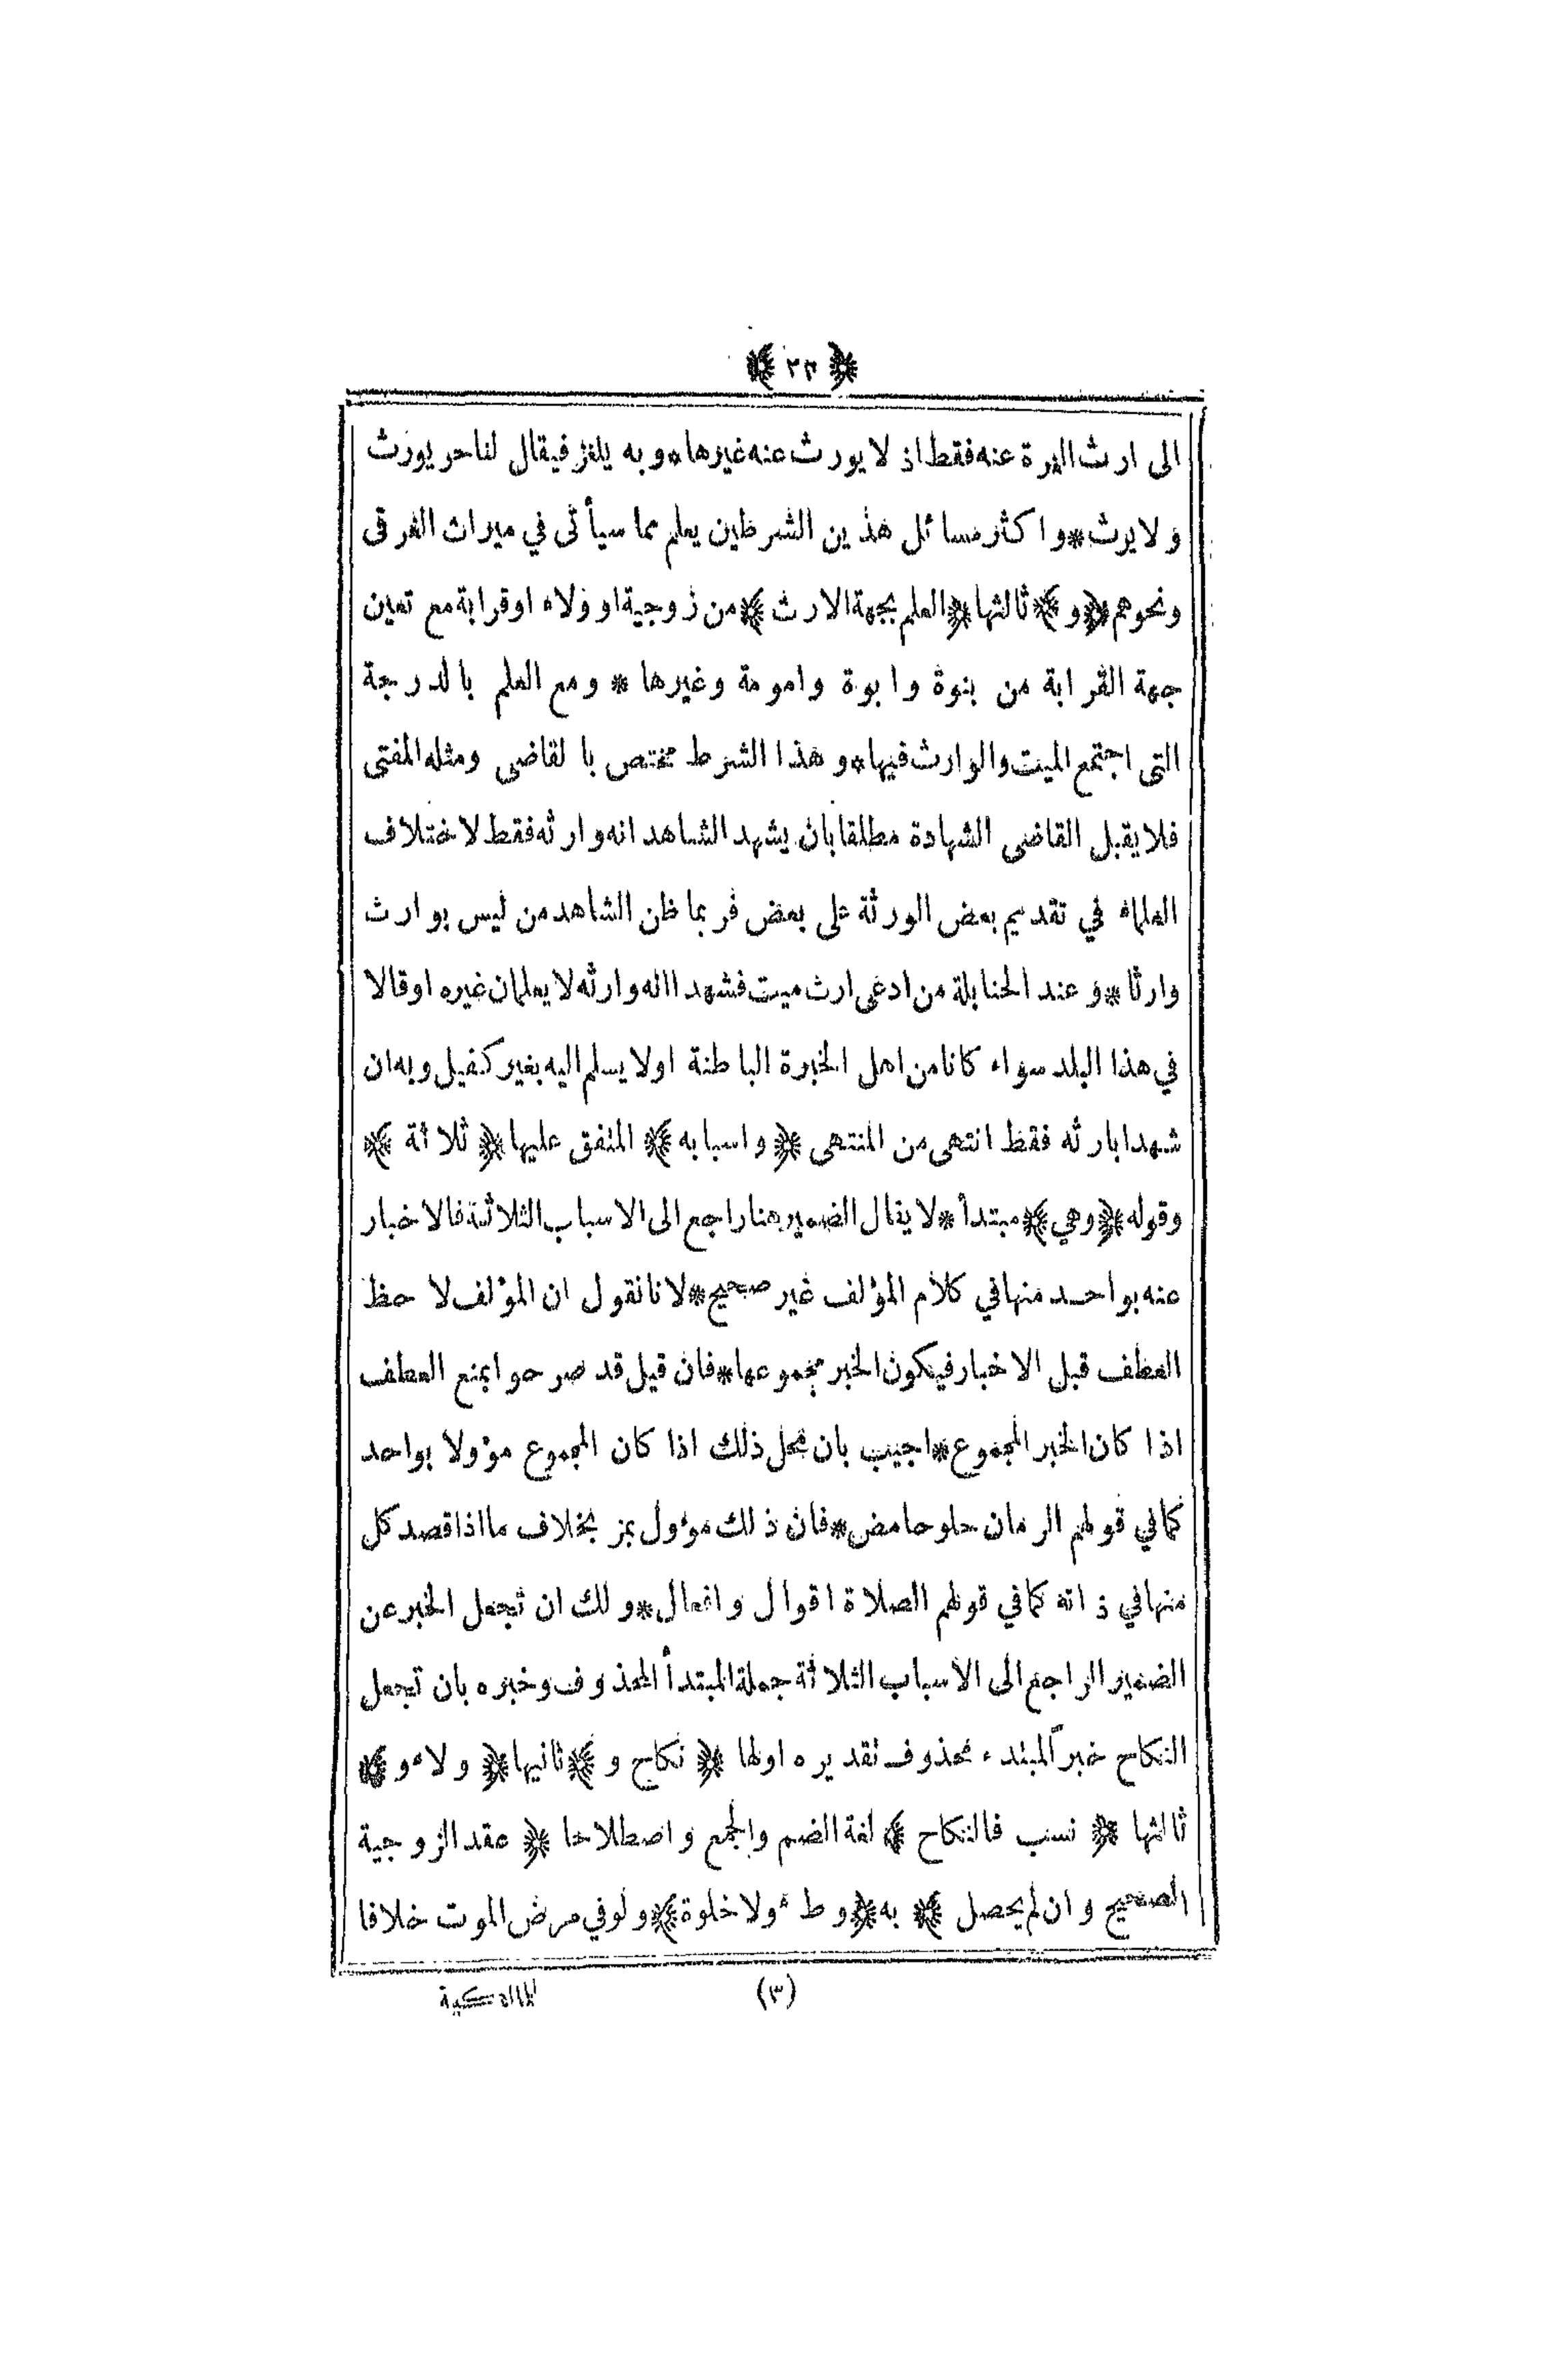 ﴿ ٢٣ ﴾
الى ارث الغرة عنه فقط اذ لا يورث عنه غيرها * وبه يلغز فيقال لنا حر يورث
ولا يرث * واكثر مسائل هذين الشرطين يعلم مما سيأتى في ميراث الغرقى
ونحوهم ﴿ و ﴾ ثالثها ﴿ العلم بجهة الارث ﴾ من زوجية او ولاء او قرابة مع تعين
جهة القرابة من بنوة وابوة وامومة وغيرها * ومع العلم بالدرجة
التى اجتمع الميت والوارث فيها * وهذا الشرط مختص بالقاضى ومثله المفتى
فلا يقبل القاضى الشهادة مطلقا بان يشهد الشاهد انه وارثه فقط لاختلاف
العلماء في تقديم بعض الورثة على بعض فربما ظن الشاهد من ليس بوارث
وارثا * وعند الحنابلة من ادعى ارث ميت فشهدا انه وارثه لا يعلمان غيره او قالا
في هذا البلد سواء كانا من اهل الخبرة الباطنة اولا يسلم اليه بغير كفيل وبه ان
شهدا بارثه فقط انتهى من المنتهى ﴿ واسبابه ﴾ المتفق عليها ﴿ ثلاثة ﴾
وقوله ﴿ وهي ﴾ مبتدأ * لا يقال الضمير هنا راجع الى الاسباب الثلاثة فالاخبار
عنه بواحد منها في كلام المؤلف غير صحيح * لانا نقول ان المؤلف لاحظ
العطف قبل الاخبار فيكون الخبر مجموعها * فان قيل قد صرحوا بمنع العطف
اذا كان الخبر المجموع * اجيب بان محل ذلك اذا كان المجموع مؤولا بواحد
كما في قولهم الرمان حلو حامض * فان ذلك مؤول بمز بخلاف ما اذا قصد كل
منها في ذاته كما في قولهم الصلاة اقوال وافعال * ولك ان تجعل الخبر عن
الضمير الراجع الى الاسباب الثلاثة جملة المبتدأ المحذوف وخبره بان تجعل
النكاح خبرآ لمبتدء محذوف تقديره اولها ﴿ نكاح و ﴾ ثانيها ﴿ ولاء و ﴾
ثالثها ﴿ نسب فالنكاح ﴾ لغة الضم والجمع واصطلاحا ﴿ عقد الزوجية
الصحيح وان لم يحصل ﴾ به ﴿ وطء ولا خلوة ﴾ ولو في مرض الموت خلافا
(٣)
للمالكية